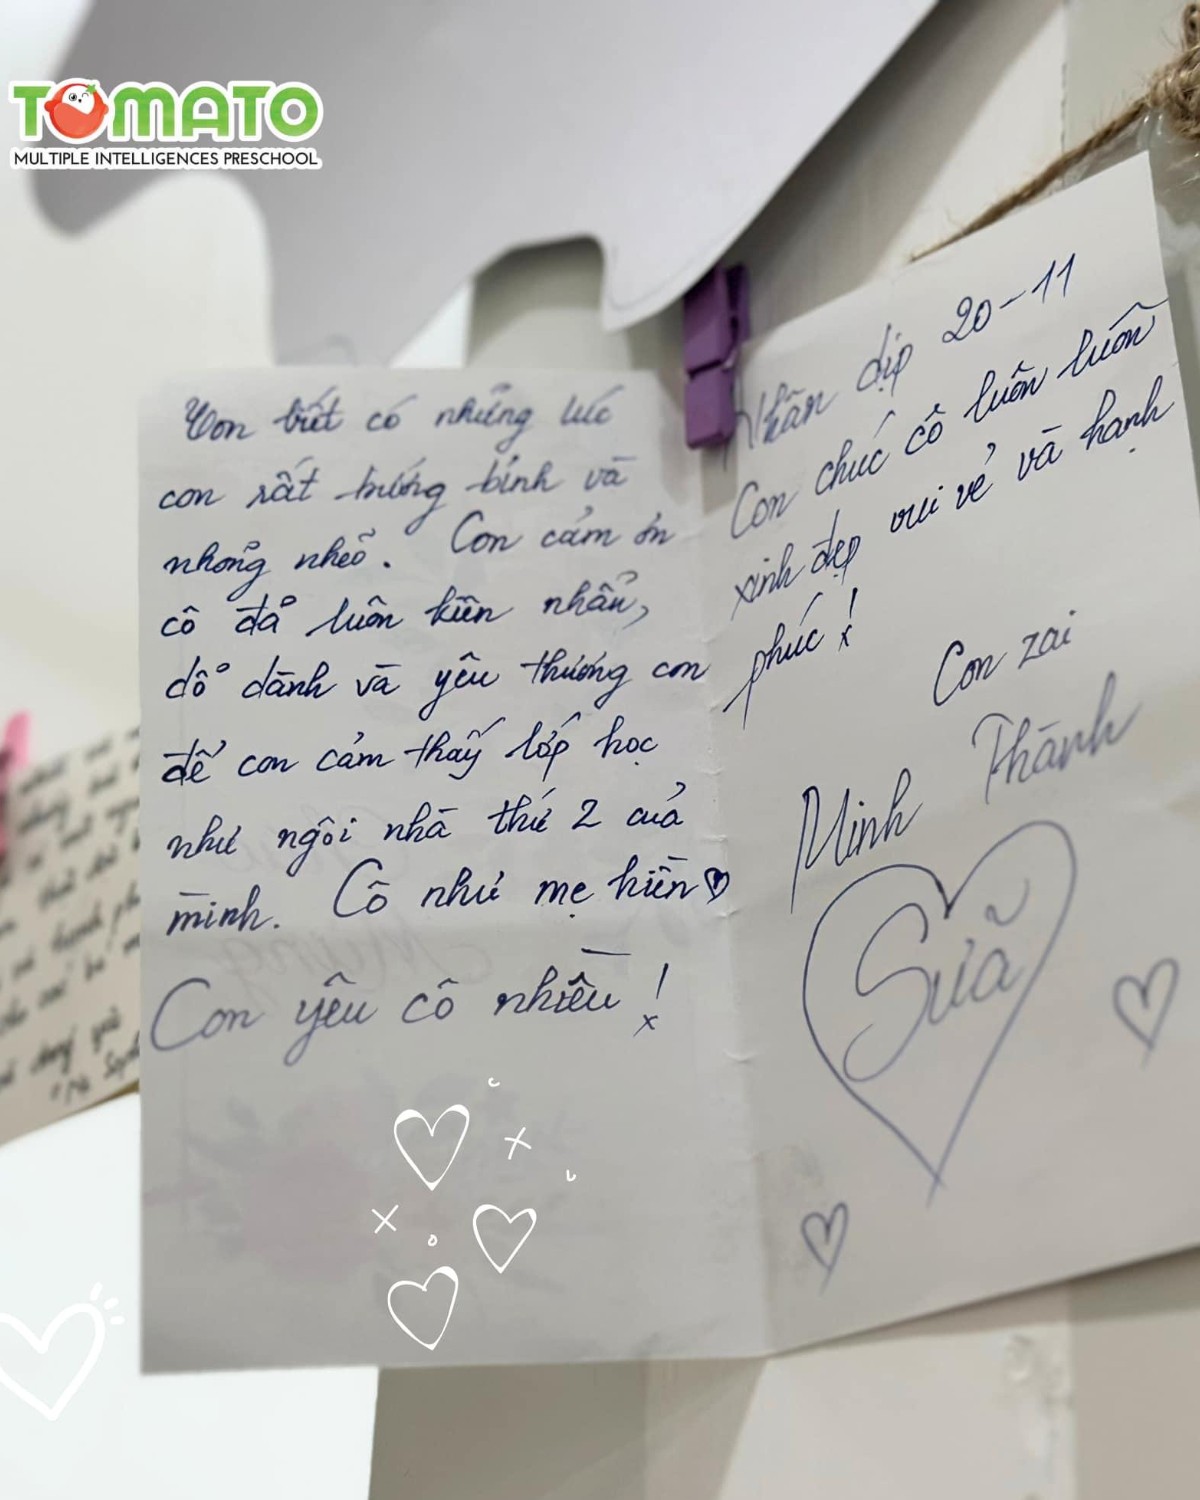 TOMATO
MULTIPLE INTELLIGENCES PRESCHOOL
Con biết có những lúc
con rất bướng bỉnh và
nhõng nhẽo. Con cảm ơn
cô đã luôn kiên nhẫn,
dỗ dành và yêu thương con
để con cảm thấy lớp học
như ngôi nhà thứ 2 của
mình. Cô như mẹ hiền
Con yêu cô nhiều!
Nhân dịp 20-11
Con chúc cô luôn luôn
xinh đẹp vui vẻ và hạnh
phúc!
Con zai
Minh Thành
Sữa